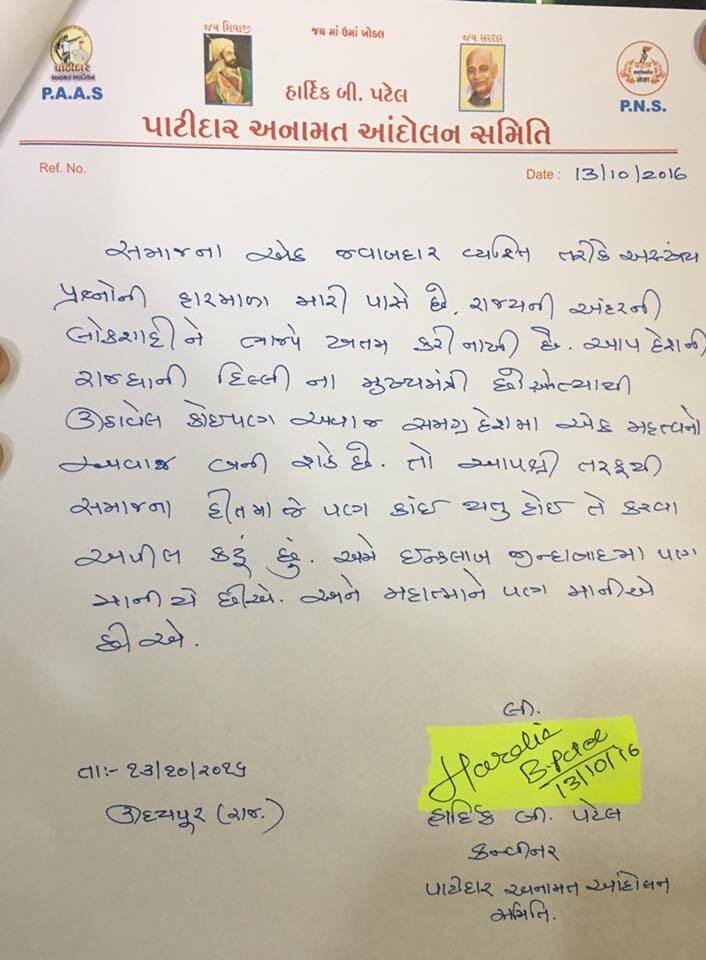 જય શિવાજી
જય માં ઉમાં ખોડલ
જય સરદાર
પાટીદાર
અનામત આંદોલન
પટેલ
નવનિર્માણ
સેના
P.A.A.S
હાર્દિક બી. પટેલ
P.N.S.
પાટીદાર અનામત આંદોલન સમિતિ
Ref. No.
Date : 13/10/2016
સમાજના એક જવાબદાર વ્યક્તિ તરીકે અસંખ્ય
પ્રશ્નોની હારમાળા મારી પાસે છે. રાજ્યની અંદરની
લોકશાહી ને ભાજપે ખતમ કરી નાખી છે. આપ દેશની
રાજધાની દિલ્લી ના મુખ્યમંત્રી છીએ ત્યાથી
ઉઠાવેલ કોઇપણ અવાજ સમગ્ર દેશમા એક મહત્વનો
અવાજ બની શકે છે. તો આપશ્રી તરફથી
સમાજના હીતમા જે પણ કાંઇ થતુ હોઇ તે કરવા
અપીલ કરું છું. અમે ઇન્કલાબ જીન્દાબાદમા પણ
માનીયે છીએ. અને મહાત્માને પણ માનીએ
છીએ.
લી.
Hardik
B. Patel
13/10/16
તા:- ૧૩/૧૦/૨૦૧૬
ઉદયપુર (રાજ.)
હાર્દિક બી. પટેલ
કન્વીનર
પાટીદાર અનામત આંદોલન
સમિતિ.